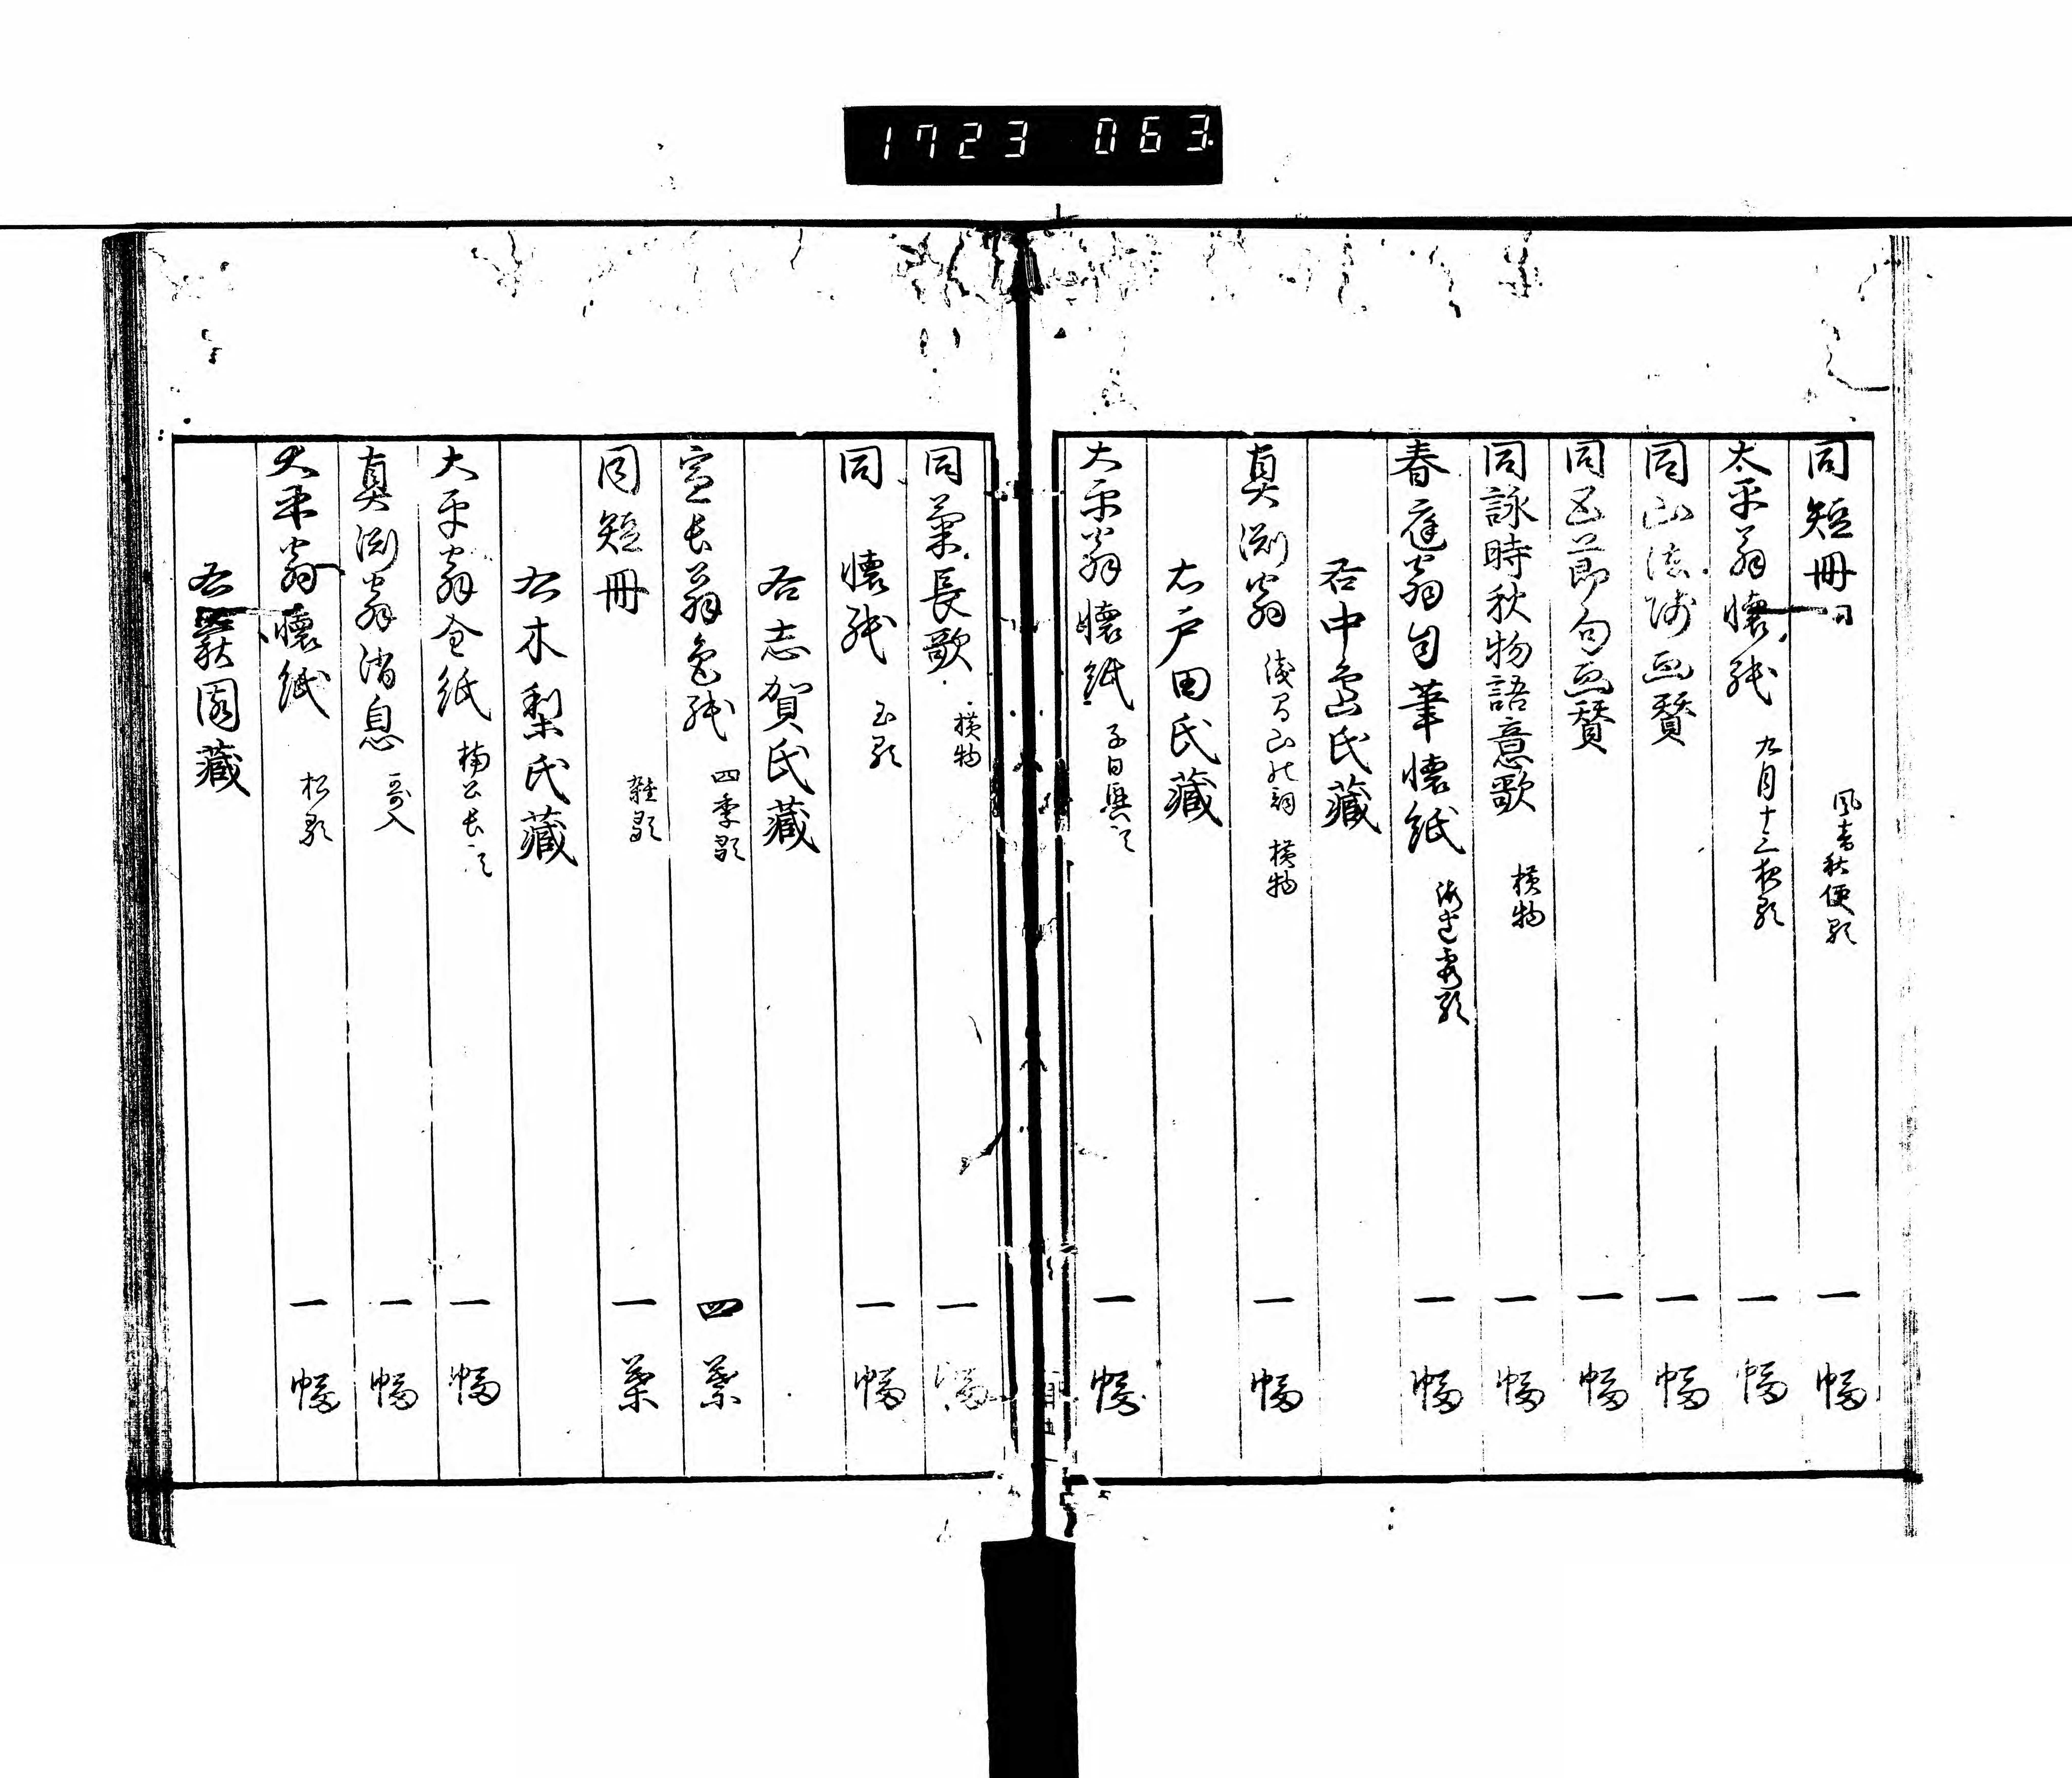 1723 063
同短冊 風告秋便歌 一幅
太平翁懐紙 九月十三夜歌 一幅
同山法師画賛 一幅
同五節句画賛 一幅
同詠時秋物語意歌 横物 一幅
春庭翁自筆懐紙 海辺霞歌 一幅
右中島氏蔵
真淵翁 山 詞 横物 一幅
右戸田氏藏
大平翁懐紙 子日興 一幅
同菊長歌 横物 一幅
同懐紙 玉歌 一幅
右志賀氏藏
宣長翁色紙 四季歌 四葉
同短冊 雑歌 一葉
右木梨氏藏
大平翁全紙 楠公長 一幅
真渕翁消息 哥入 一幅
大平翁懐紙 松歌 一幅
右 園藏